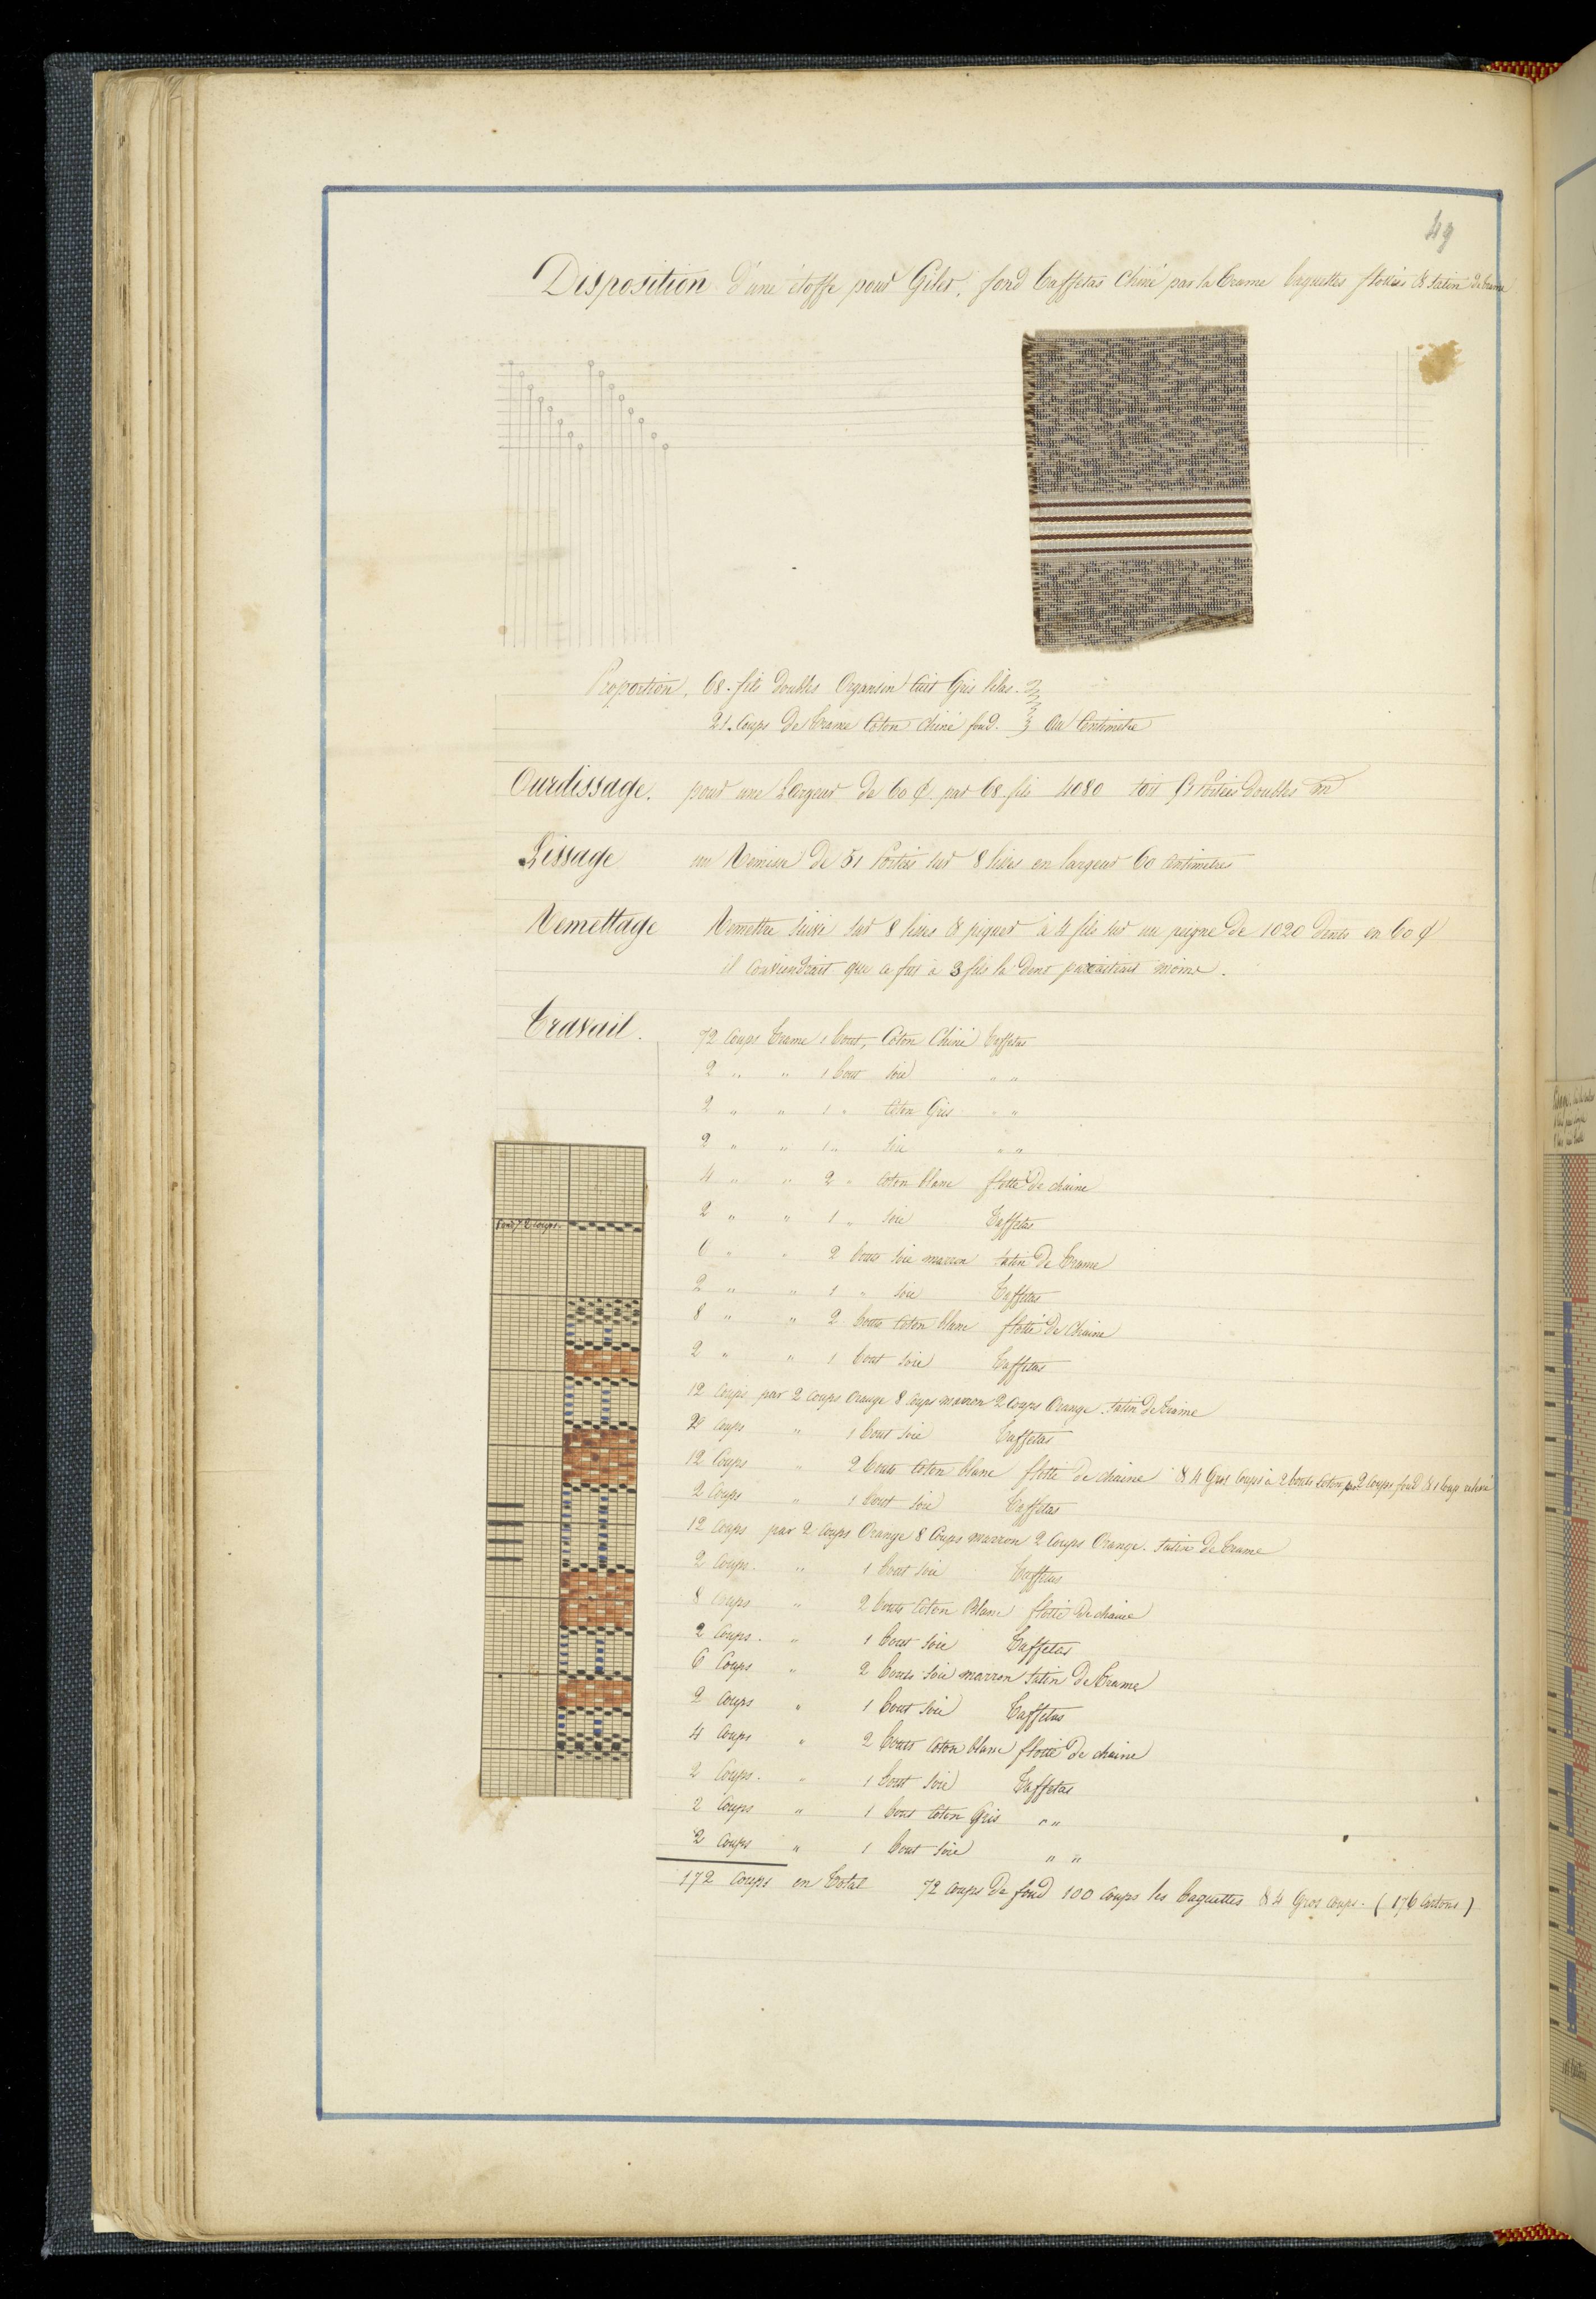 49
Disposition d'une étoffe pour Gilet, fond Taffetas Chiné par la trame baguettes flottées & satin de trame
Proportion, 68 fils doubles Organsin cuit Gris lilas.
21 Coups de trame Coton chiné fond. au Centimètre
Ourdissage. pour une Largeur de 60 ¢ par 68 fils 4080 soit 51 Portées doubles
Lissage un Remisse de 51 Portées sur 8 lisses en largeur 60 Centimetres
Remettage Remettre suivi sur 8 lisses & piquer à 4 fils sur un peigne de 1020 dents en 60 ¢
il conviendrait que ce fut à 3 fils la dent paraitrait moins.
Travail. 72 Coups trame 1 bout, Coton Chiné taffetas
2 " " 1 bout soie " "
2 " " 1 " Coton Gris " "
2 " " 1 " soie " "
4 " " 2 " Coton blanc flotté de chaine
2 " " 1 " soie Taffetas
6 " " 2 bouts soie marron satin de trame
2 " " 1 " soie Taffetas
8 " " 2 bouts Coton blanc flotté de chaine
2 " " 1 bout soie Taffetas
12 Coups par 2 Coups Orange 8 Coups marron 2 Coups Orange satin de trame
2 Coups " 1 bout soie Taffetas
12 Coups " 2 bouts Coton blanc flotté de chaine & 4 Gros Coups à 2 bouts Coton par 2 Coups fond & 1 Coup
2 Coups " 1 bout soie Taffetas
12 Coups par 2 Coups Orange 8 Coups marron 2 Coups Orange. satin de trame
2 Coups. " 1 bout soie Taffetas
8 Coups " 2 bouts Coton Blanc flotté de chaine
2 Coups. " 1 bout soie Taffetas
6 Coups " 2 bouts soie marron satin de trame
2 Coups " 1 bout soie Taffetas
4 Coups " 2 bouts Coton blanc flotté de chaine
2 Coups. " 1 bout soie Taffetas
2 Coups " 1 bout Coton Gris " "
2 Coups " 1 bout soie " "
172 Coups en total 72 Coups de fond 100 Coups les baguettes & 4 Gros Coups. (176 Cartons)
fond 72 Coups.